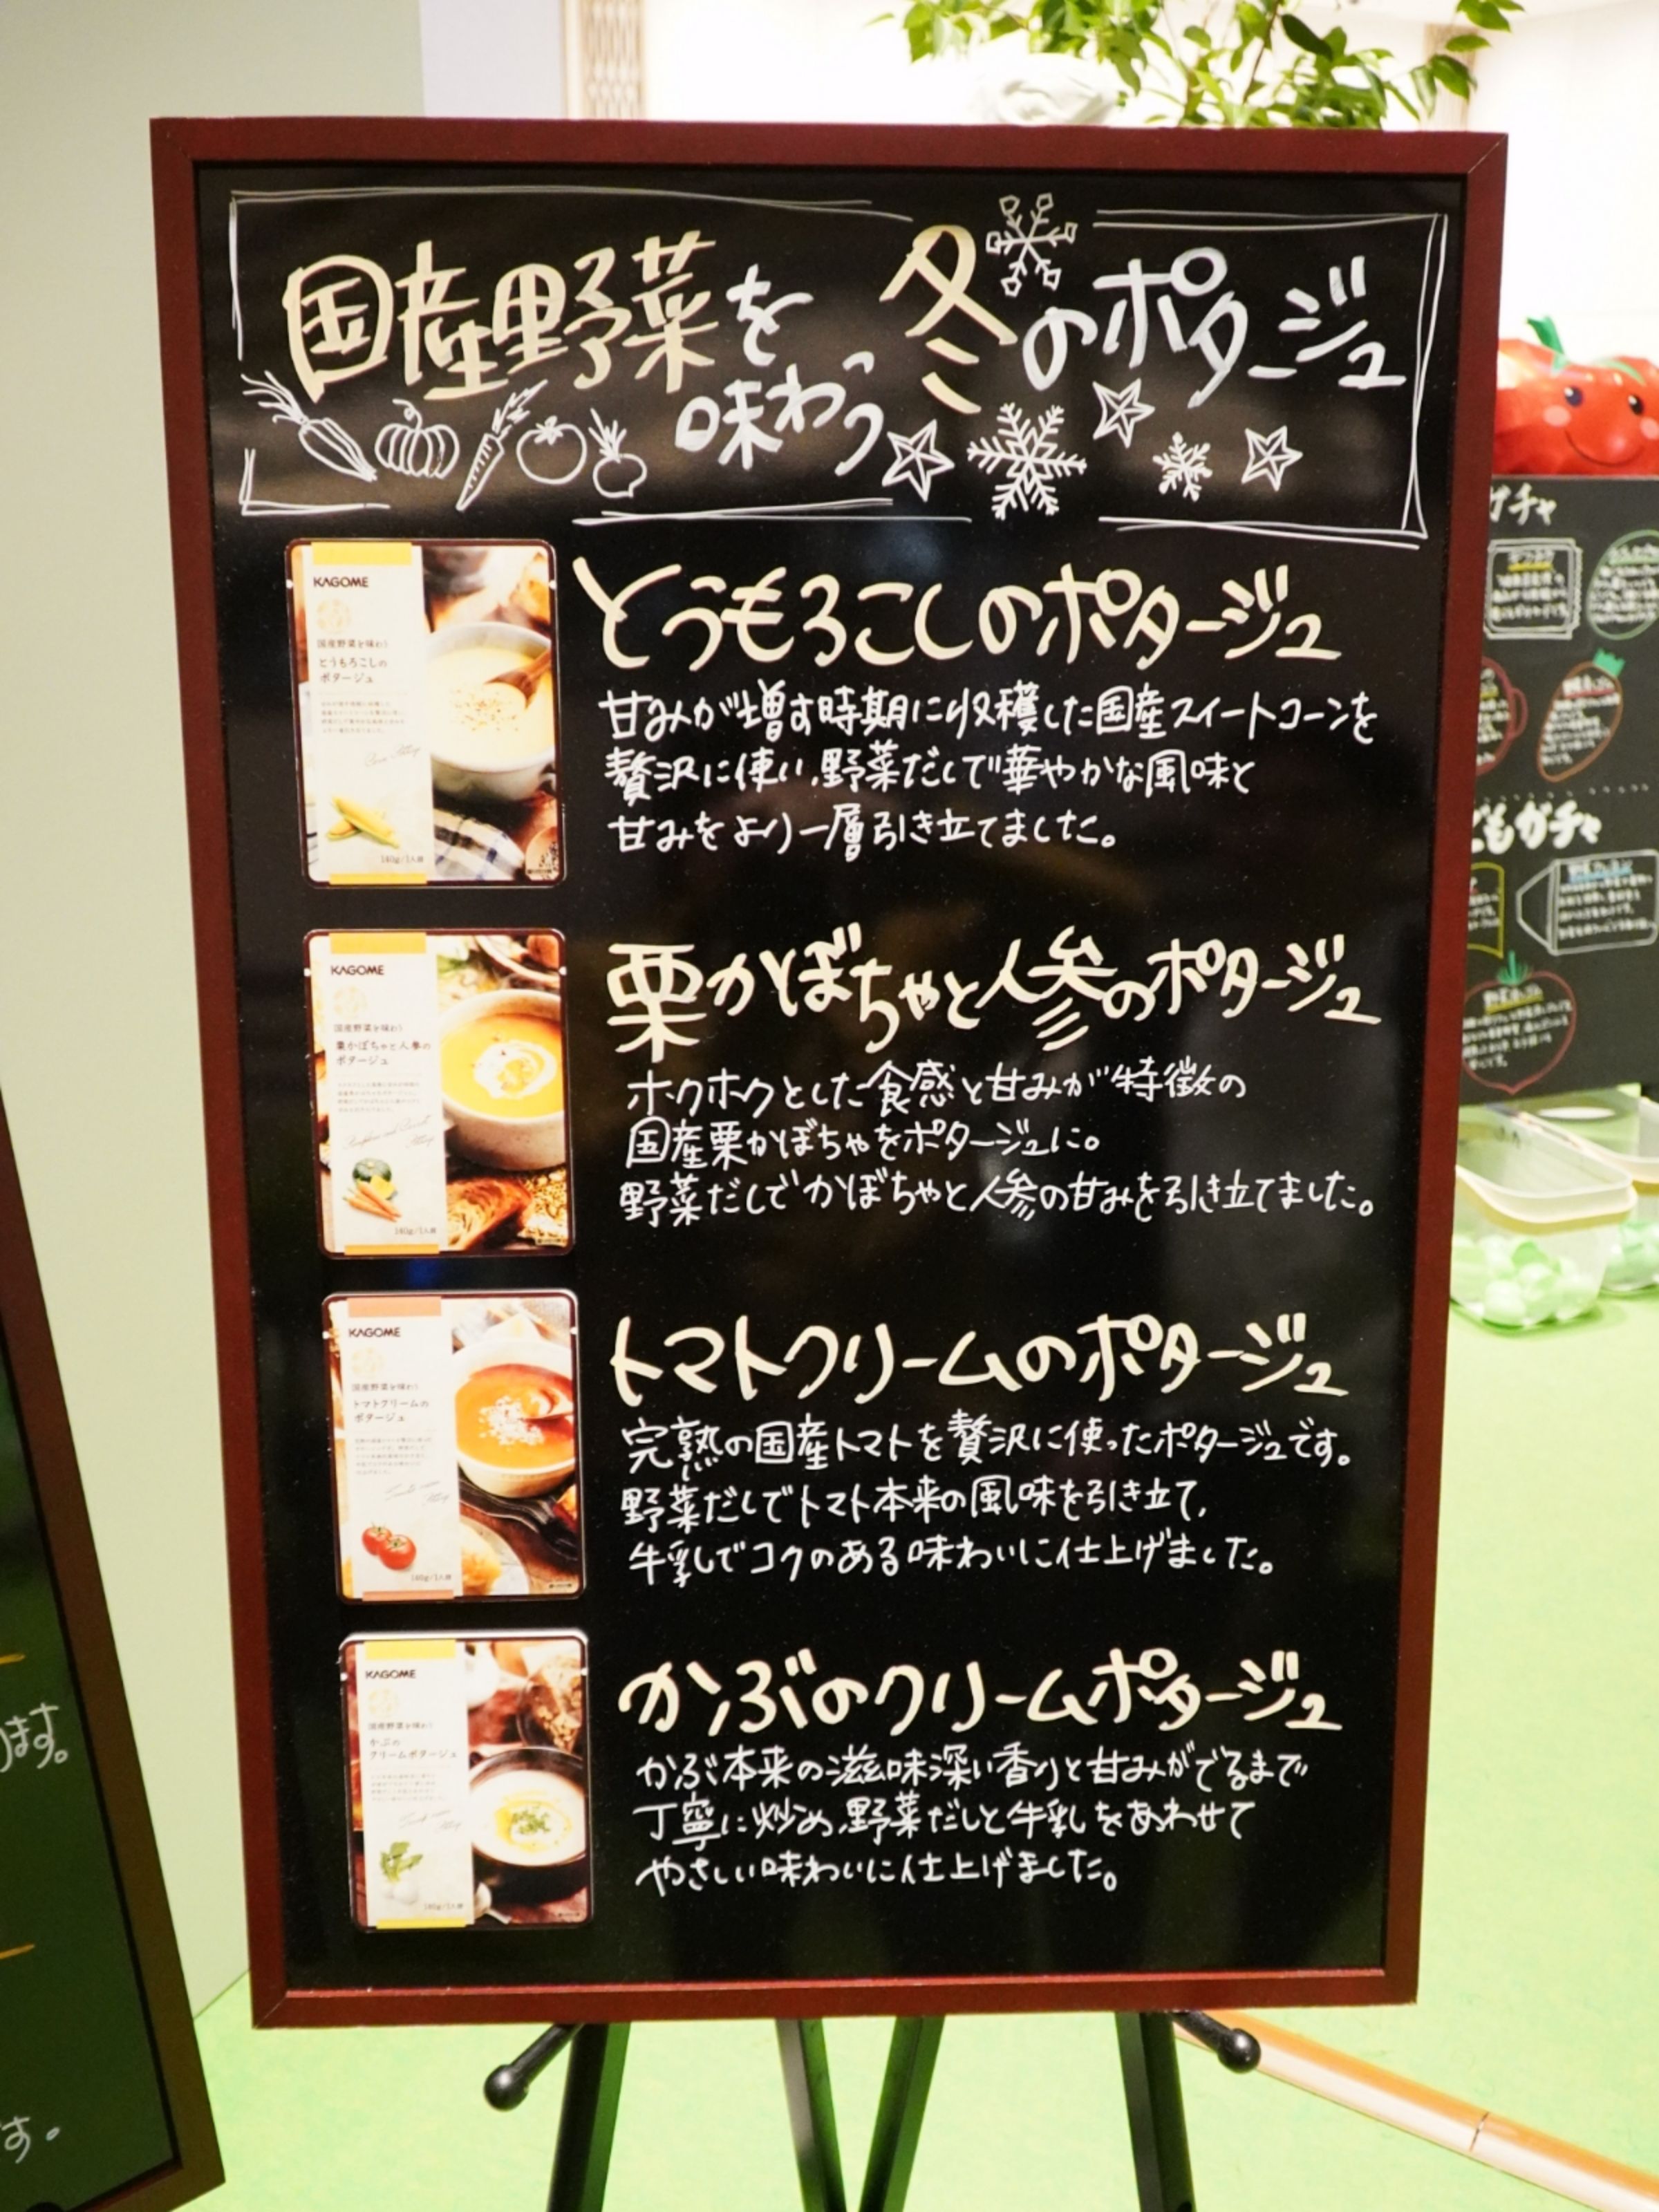 国産野菜を
味わう
冬のポタージュ
KAGOME
国産野菜を味わう
とうもろこしの
ポタージュ
160g/1人前
とうもろこしのポタージュ
甘みが増す時期に収穫した国産スイートコーンを
贅沢に使い、野菜だしで華やかな風味と
甘みをより一層引き立てました。
KAGOME
国産野菜を味わう
栗かぼちゃと人参の
ポタージュ
160g/1人前
栗かぼちゃと人参のポタージュ
ホクホクとした食感と甘みが特徴の
国産栗かぼちゃをポタージュに。
野菜だしでかぼちゃと人参の甘みを引き立てました。
KAGOME
国産野菜を味わう
トマトクリームの
ポタージュ
160g/1人前
トマトクリームのポタージュ
完熟の国産トマトを贅沢に使ったポタージュです。
野菜だしでトマト本来の風味を引き立て、
牛乳でコクのある味わいに仕上げました。
KAGOME
国産野菜を味わう
かぶの
クリームポタージュ
160g/1人前
かぶのクリームポタージュ
かぶ本来の滋味深い香りと甘みがでるまで
丁寧に炒め、野菜だしと牛乳をあわせて
やさしい味わいに仕上げました。
ガチャ
どもガチャ
ります。
す。